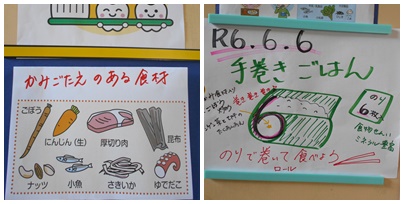 かみごたえ のある 食材
ごぼう
にんじん(生)
厚切り肉
昆布
ナッツ
小魚
さきいか
ゆでだこ
R6.6.6
手巻きごはん
巻き 巻き 巻き
6
のり
6枚
食物せんい
ミネラル豊富
のりで巻いて食べよう
ロール